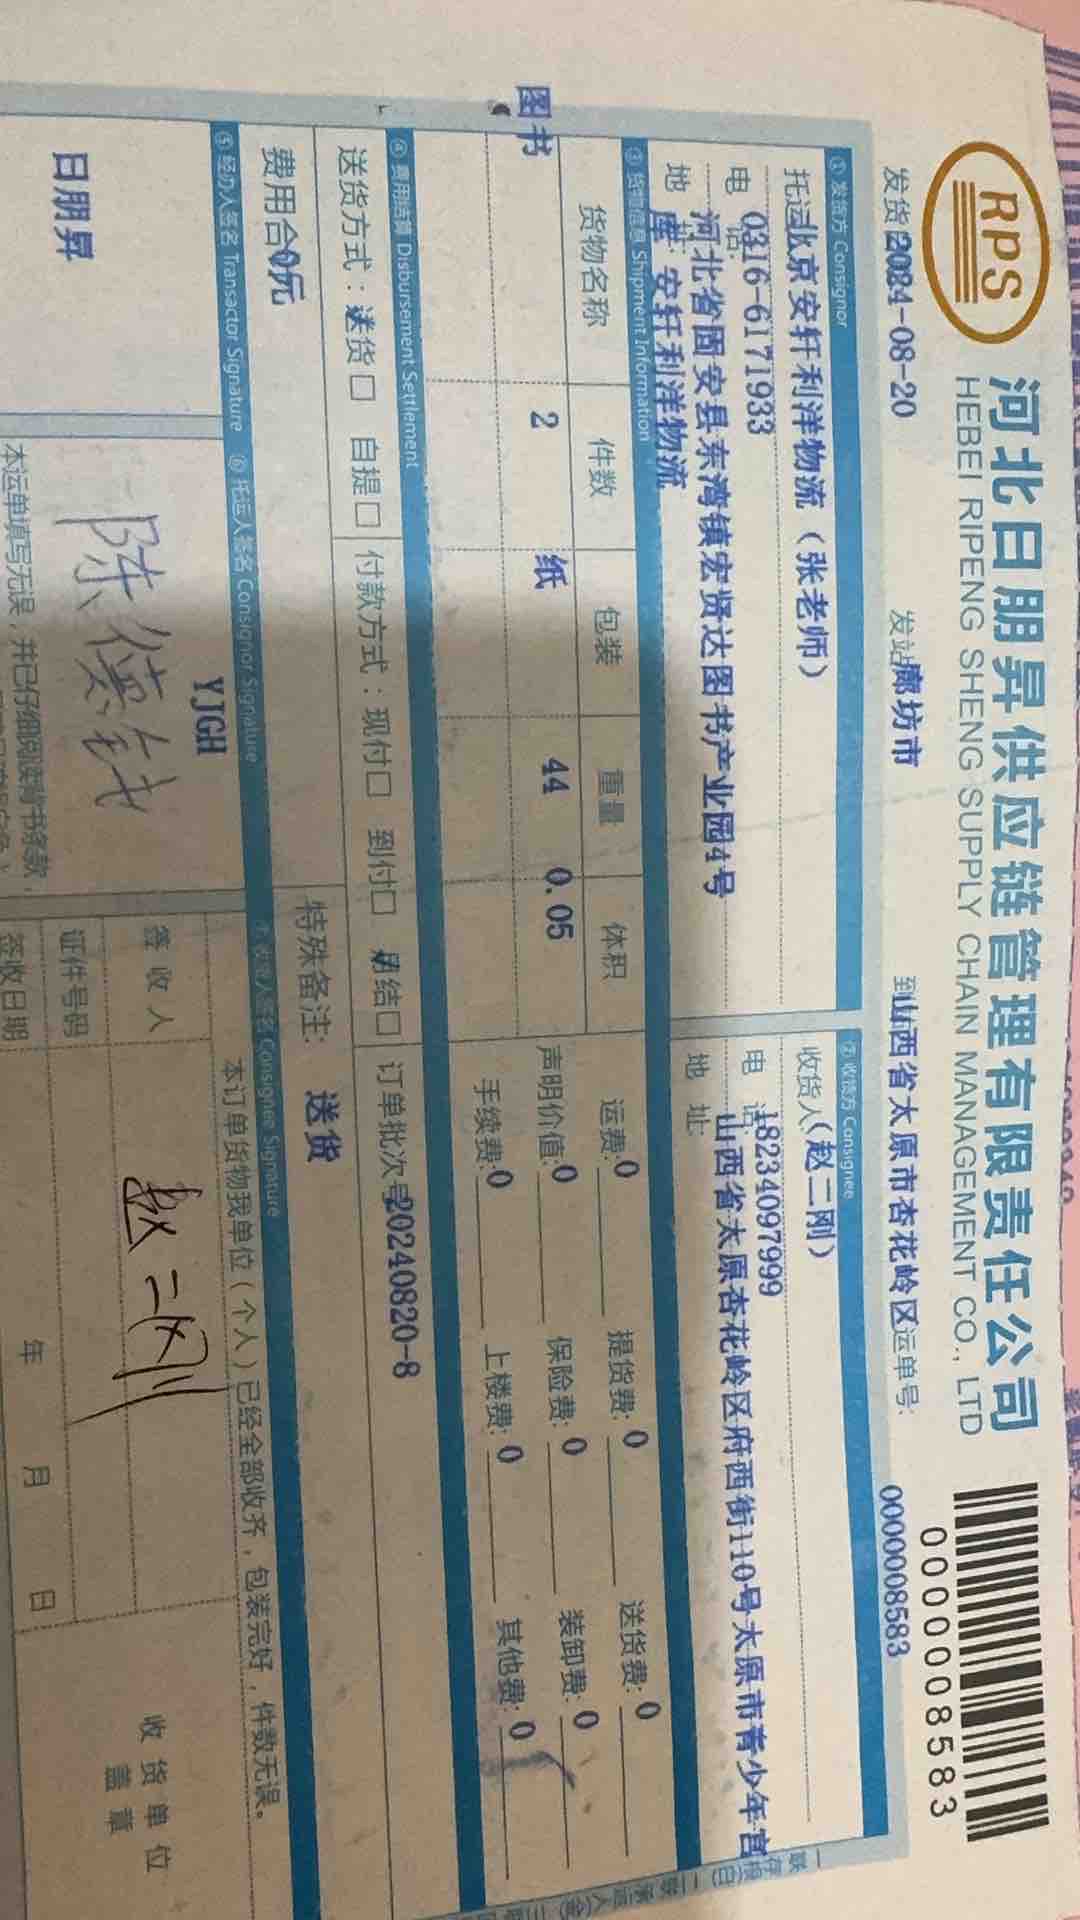 RPS
河北日朋昇供应链管理有限责任公司
HEBEI RIPENG SHENG SUPPLY CHAIN MANAGEMENT CO., LTD
0000008583
发货 2024-08-20 发站 廊坊市 到 山西省太原市杏花岭区 运单号: 0000008583
① 发货方 Consignor
② 收货方 Consignee
托运 北京安轩利洋物流（张老师）
收货人（赵二刚）
电话: 0316-6171933
电话: 18234097999
地址: 河北省固安县东湾镇宏贤达图书产业园4号
库 安轩利洋物流
地址: 山西省太原杏花岭区府西街110号太原市青少年宫
③ 货物信息 Shipment Information
货物名称 件数 包装 重量 体积
图书 2 纸 44 0.05
运费: 0 提货费: 0 送货费: 0
声明价值: 0 保险费: 0 装卸费: 0
手续费: 0 上楼费: 0 其他费: 0
④ 费用结算 Disbursement Settlement
送货方式：送货□ 自提□ 付款方式：现付□ 到付□ 月结□ 订单批次号 20240820-8
费用合 0元
特殊备注: 送货
⑤ 经办人签名 Transactor Signature
⑥ 托运人签名 Consignor Signature
收货人签名 Consignee Signature
日朋昇
YJGH
本运单填写无误，并已仔细阅读背书条款，
本订单货物我单位（个人）已经全部收齐，包装完好，件数无误。
签收人 赵二刚
证件号码
签收日期 年 月 日
收货单位
盖章